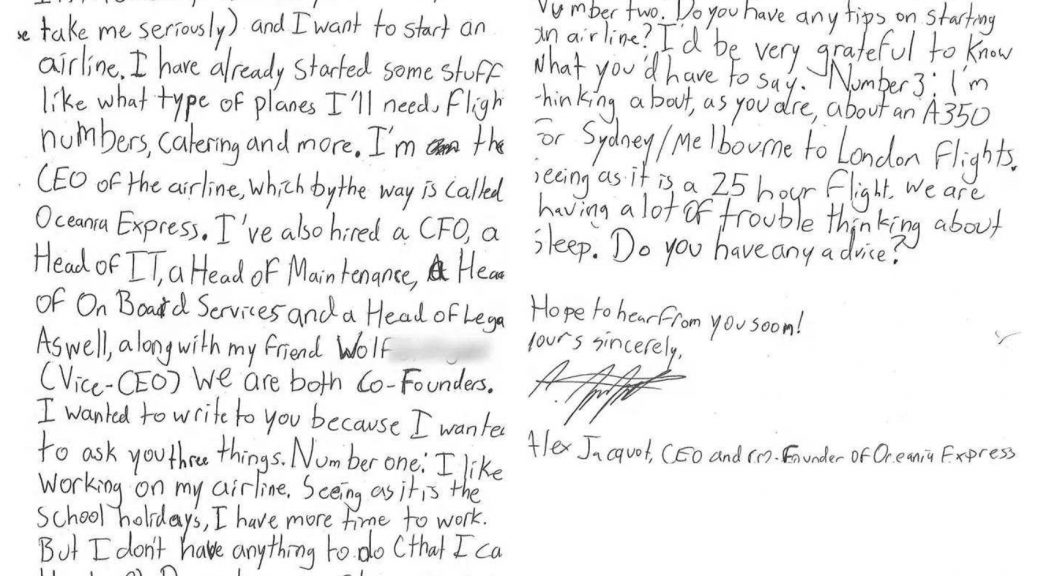 take me seriously) and I want to start an
airline. I have already started some stuff
like what type of planes I'll need, fligh
numbers, catering and more. I'm the
CEO of the airline, which by the way is called
Oceania Express. I've also hired a CFO, a
Head of IT, a Head of Maintenance, A Hea
of On Board Services and a Head of Lega
Aswell, along with my friend Wolf
(Vice-CEO) We are both Co-Founders.
I wanted to write to you because I wanted
to ask you three things. Number one: I like
working on my airline. Seeing as it is the
school holidays, I have more time to work.
But I don't have anything to do (that I ca
Number two. Do you have any tips on starting
an airline? I'd be very grateful to know
what you'd have to say. Number 3: I'm
thinking about, as you are, about an A350
for Sydney/Melbourne to London flights.
seeing as it is a 25 hour flight, we are
having a lot of trouble thinking about
sleep. Do you have any advice?
Hope to hear from you soon!
Yours sincerely,
Alex Jacquot, CEO and co-Founder of Oceania Express